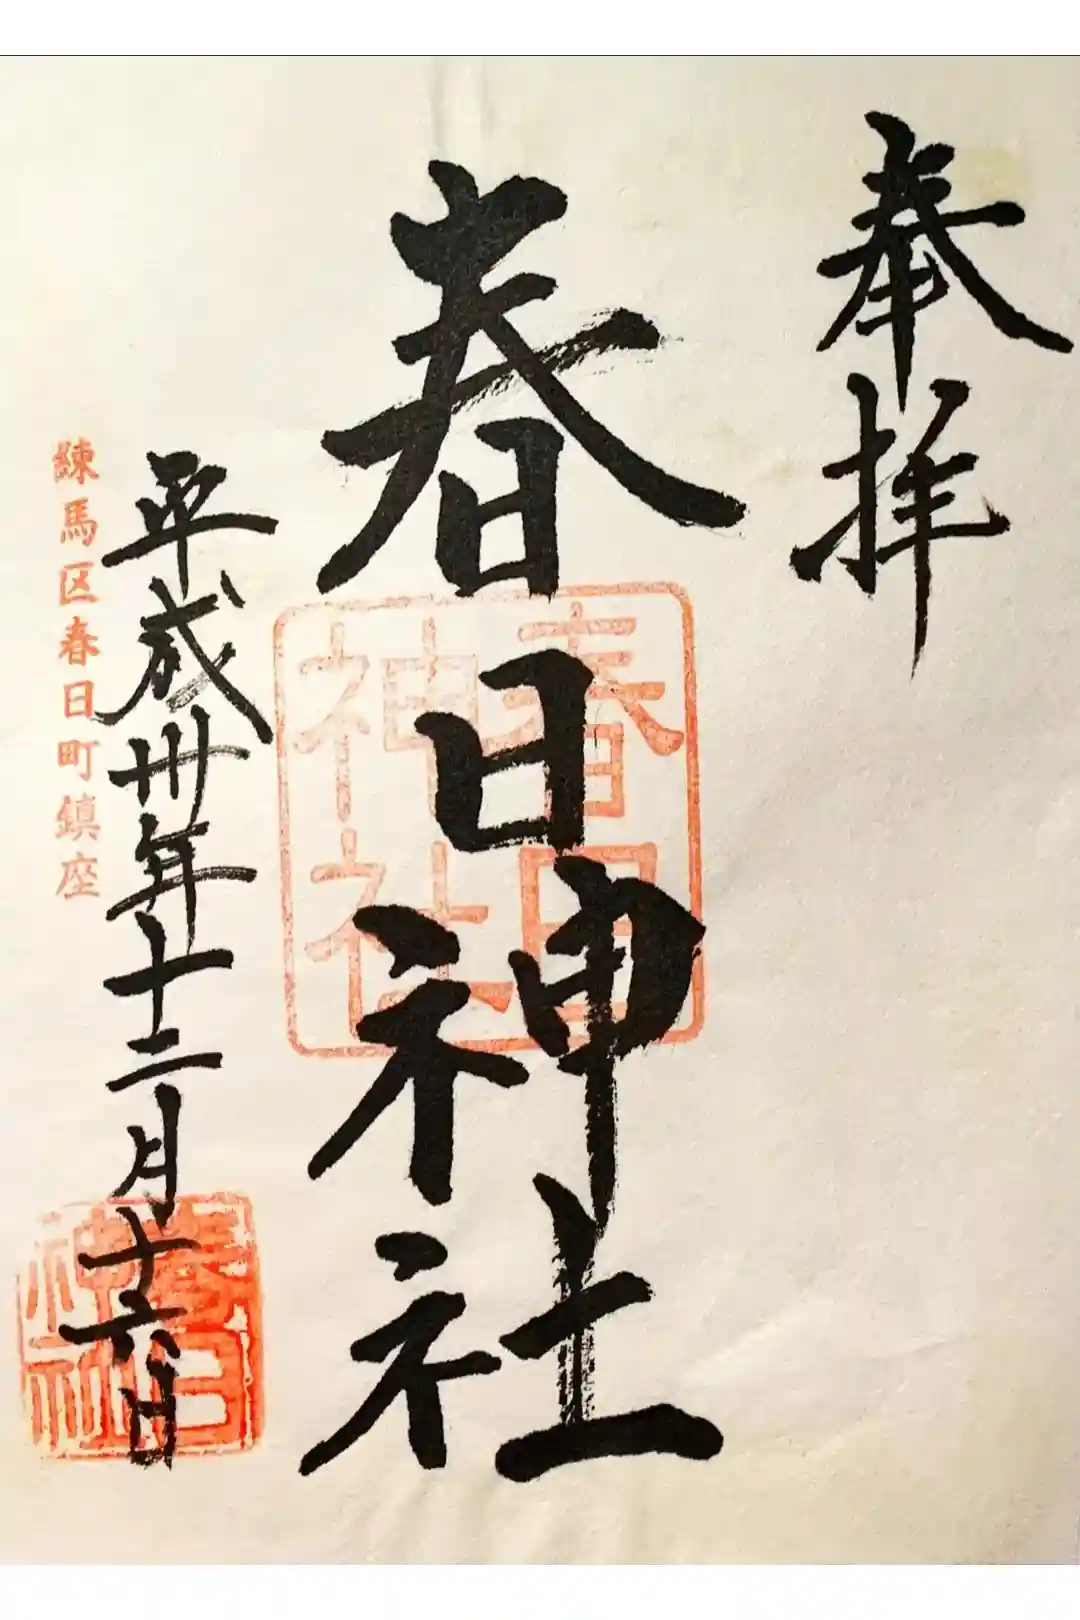 奉拝
春日神社
春日神社
平成卅年十二月十六日
春日神社
練馬区春日町鎮座